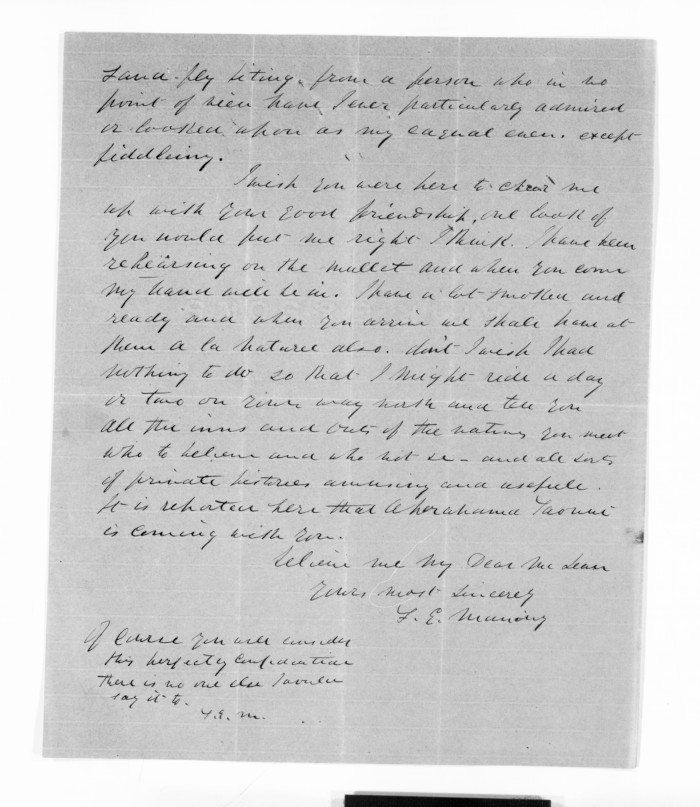 Sand-fly biting, from a person who in no
point of view have I ever particularly admired
or looked upon as my eaqual even. except
fiddleing.
I wish you were here to cheer me
up with your good friendship, one look of
you would put me right I think. I have been
rehearsing on the mullet and when you come
my hand will be in. I have a lot smoked and
ready and when you arrive we shall have at
them a la naturel also. dont I wish I had
nothing to do so that I might ride a day
or two on your way north and tell you
all the inns and outs of the natives you meet
who to believe and who not so - and all sorts
of private histories amusing and usefull.
It is reported here that Aperahama Taonui
is coming with you.
Believe me My Dear McLean
Yours most sincerely
F. E. Maning
Of course you will consider
this perfectly confidential
there is no one else I would
say it to.
F. E. M.